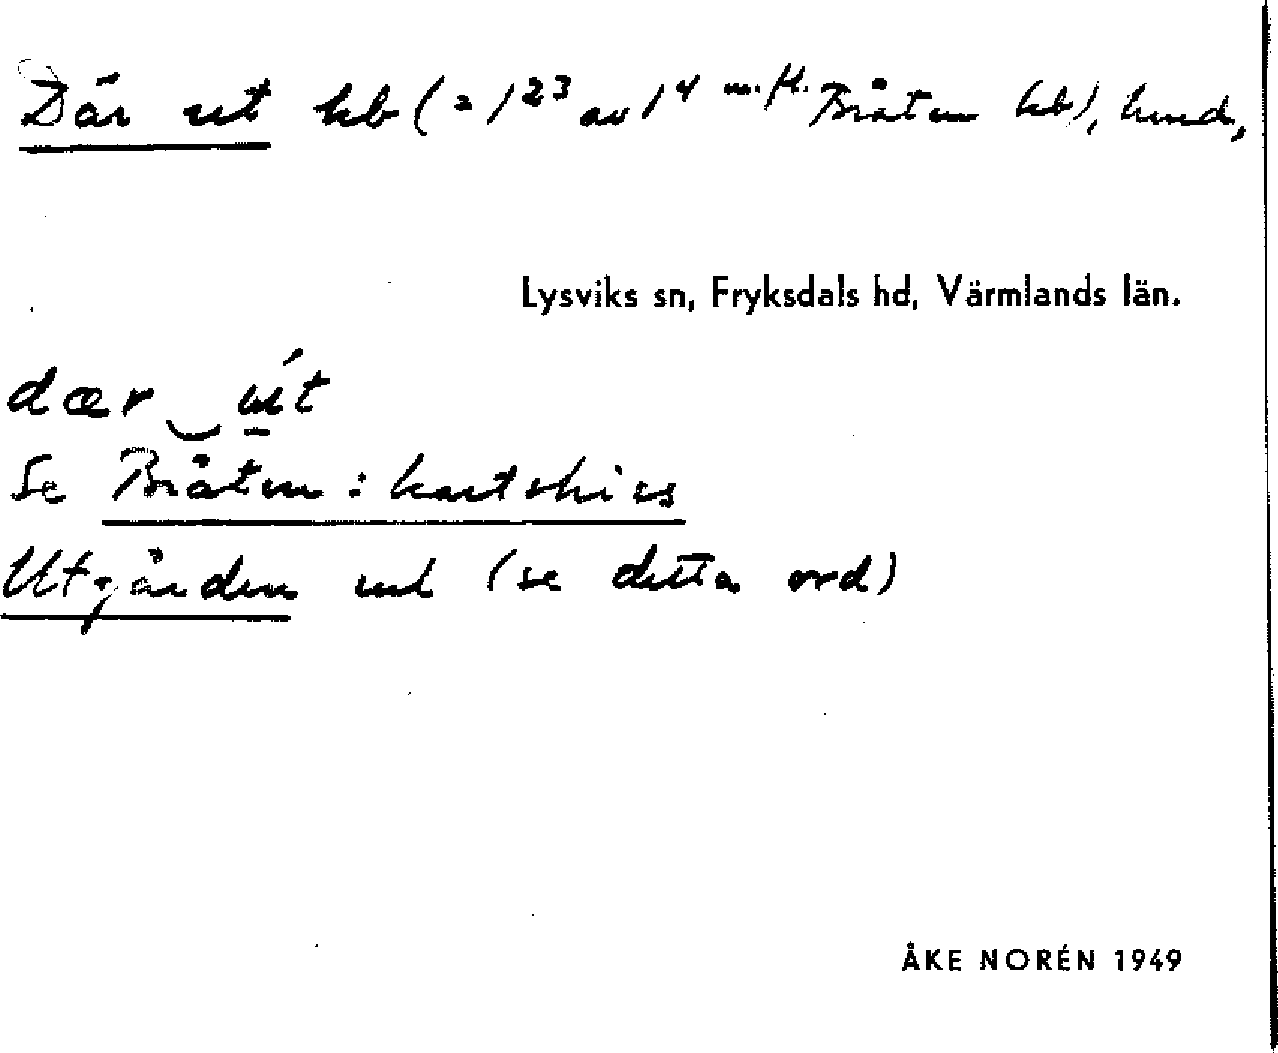 Där ut hb (= 1²³ av 1⁴ m. fl. Bråten hb), hmd,
Lysviks sn, Fryksdals hd, Värmlands län.
dær‿út
Se Bråten: kartskiss
Utgården (se detta ord)
ÅKE NORÉN 1949